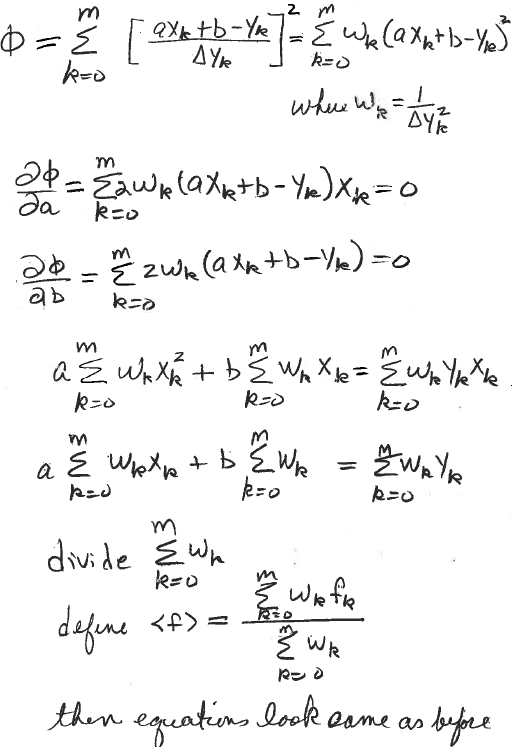 ϕ = Σ_{k=0}^{m} [ (ax_k + b - y_k) / Δy_k ]² = Σ_{k=0}^{m} w_k (ax_k + b - y_k)²
where w_k = 1 / Δy_k²
∂ϕ/∂a = Σ_{k=0}^{m} 2w_k (ax_k + b - y_k) x_k = 0
∂ϕ/∂b = Σ_{k=0}^{m} 2w_k (ax_k + b - y_k) = 0
a Σ_{k=0}^{m} w_k x_k² + b Σ_{k=0}^{m} w_k x_k = Σ_{k=0}^{m} w_k y_k x_k
a Σ_{k=0}^{m} w_k x_k + b Σ_{k=0}^{m} w_k = Σ_{k=0}^{m} w_k y_k
divide Σ_{k=0}^{m} w_k
define <f> = Σ_{k=0}^{m} w_k f_k / Σ_{k=0}^{m} w_k
then equations look same as before